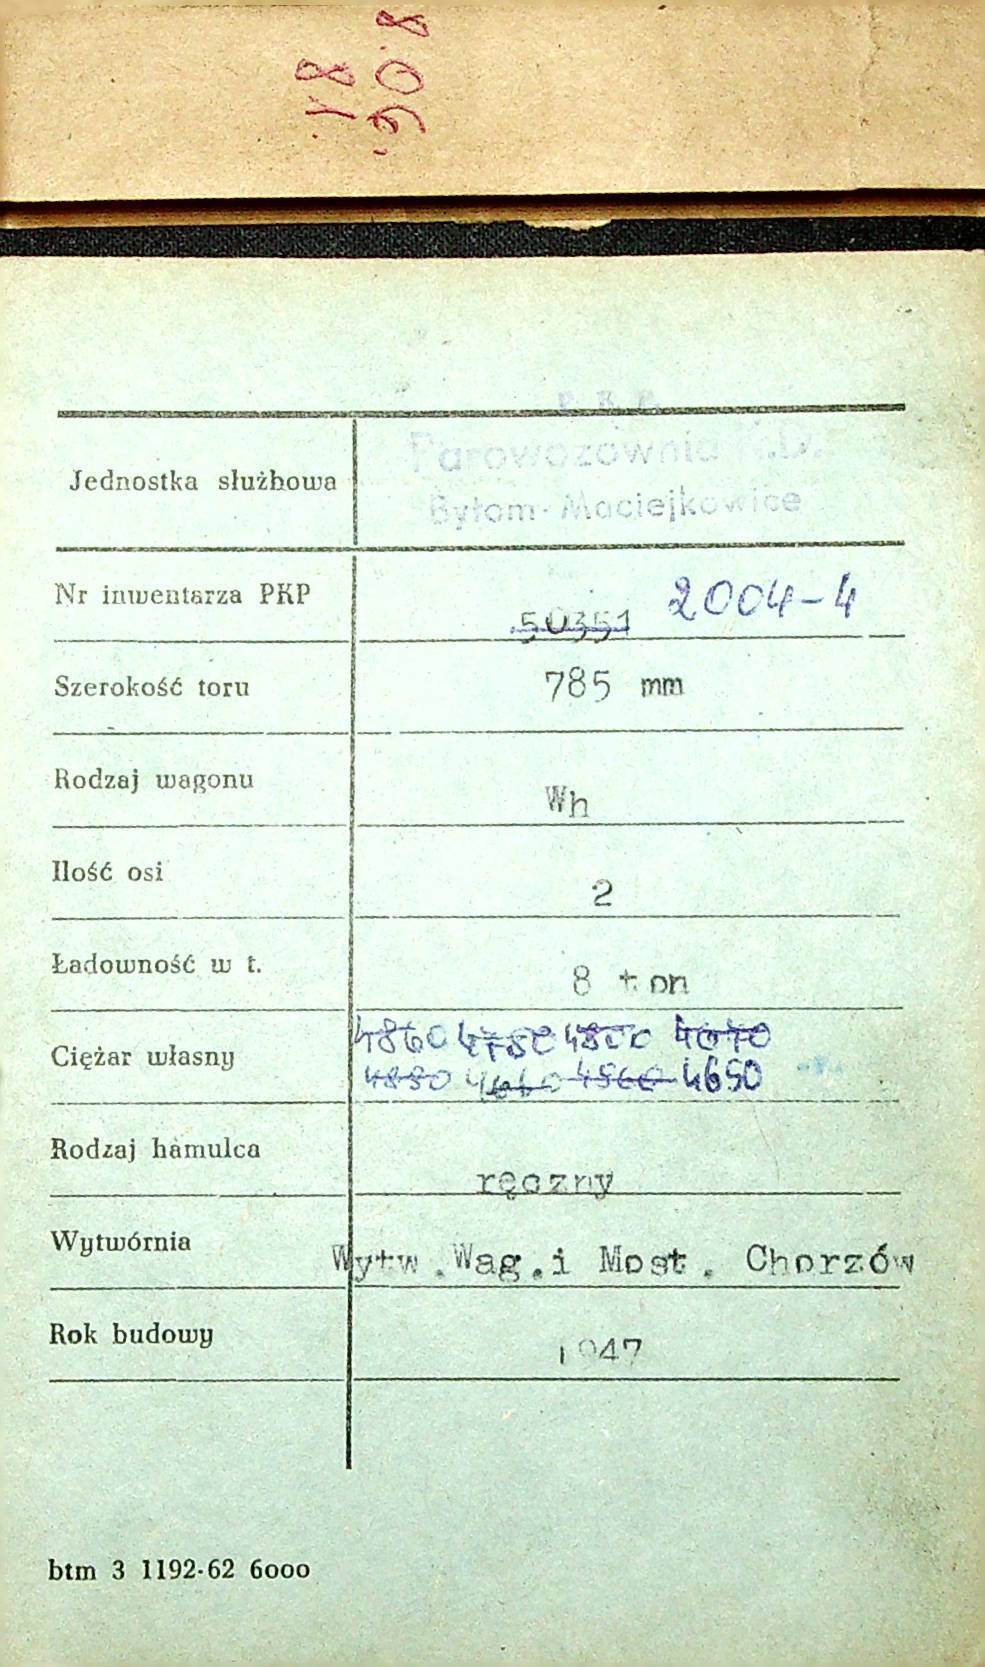 P. K. P.
Parowozownia K.D.
Bytom-Maciejkowice
Jednostka służbowa
Nr inwentarza PKP 50351 2004-4
Szerokość toru 785 mm
Rodzaj wagonu Wh
Ilość osi 2
Ładowność w t. 8 ton
Ciężar własny 4860 4780 4800
4880 4650
Rodzaj hamulca ręczny
Wytwórnia Wytw.Wag.i Most. Chorzów
Rok budowy 1947
btm 3 1192-62 6000